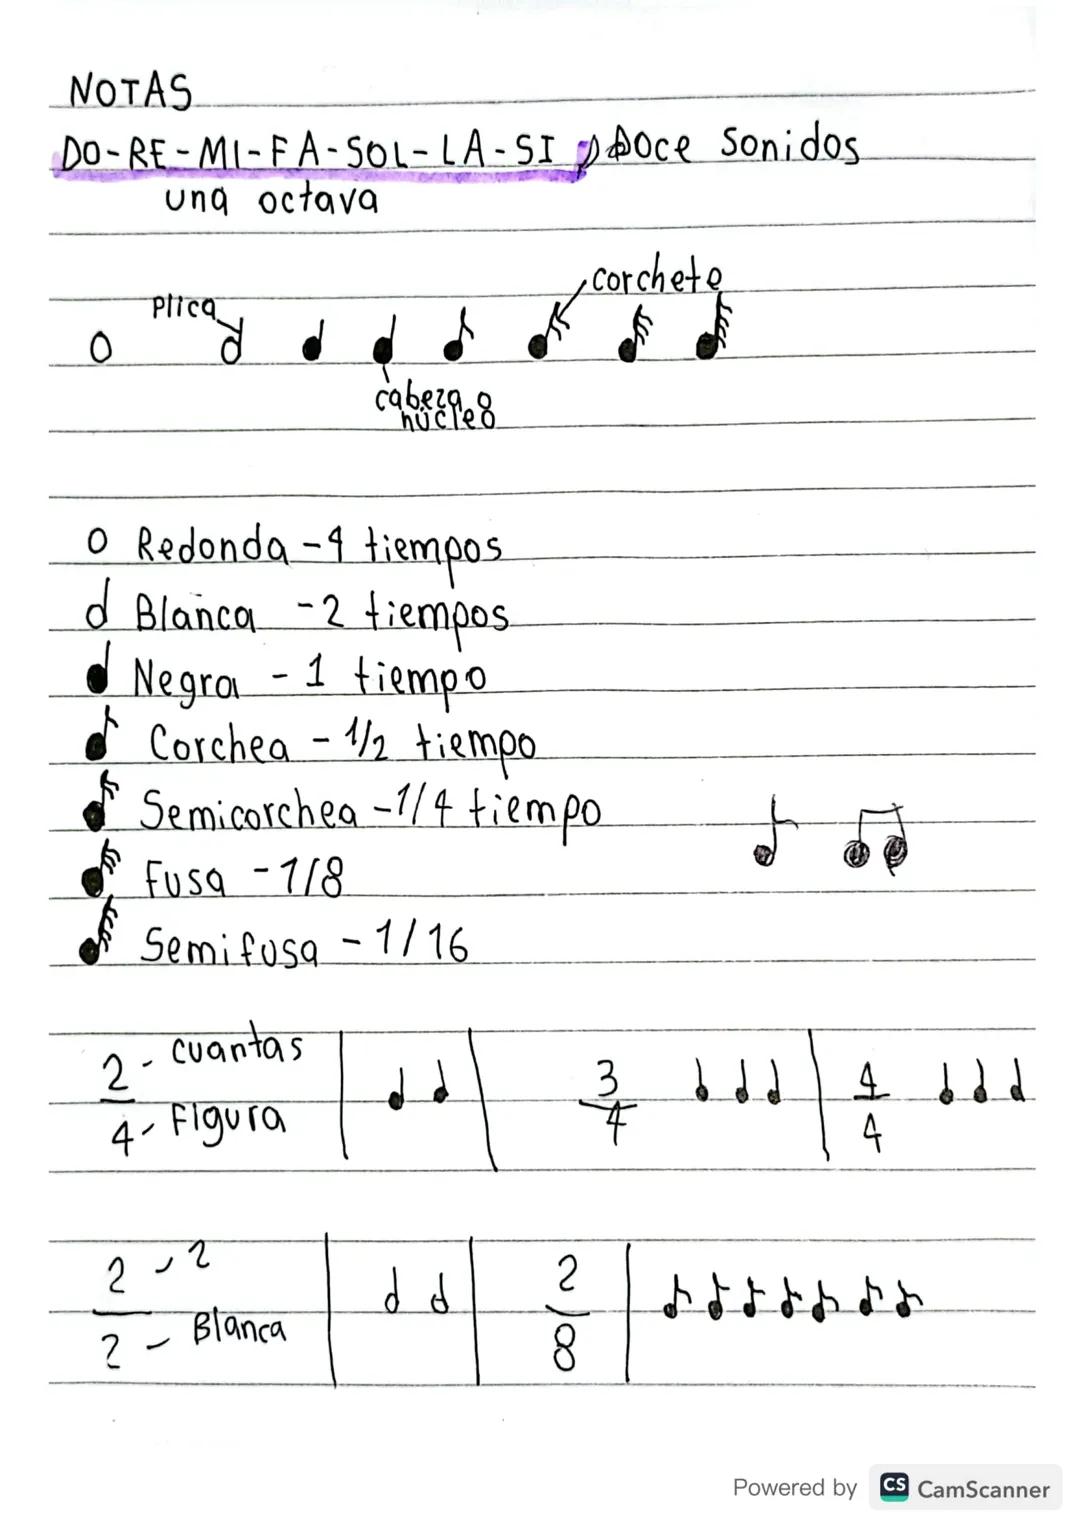 NOTAS
DO-RE-MI-FA-SOL-LA-SI Doce sonidos
una octava
corchete
Plica
cabeza o
núcleo
Redonda - 4 tiempos
Blanca - 2 tiempos
Negra - 1 tiempo
Corchea - 1/2 tiempo
Semicorchea - 1/4 tiempo
Fusa - 1/8
Semifusa - 1/16
2 - cuantas 3 4
4 - Figura 4 4
2 - 2 2
2 - Blanca 8
Powered by CS CamScanner